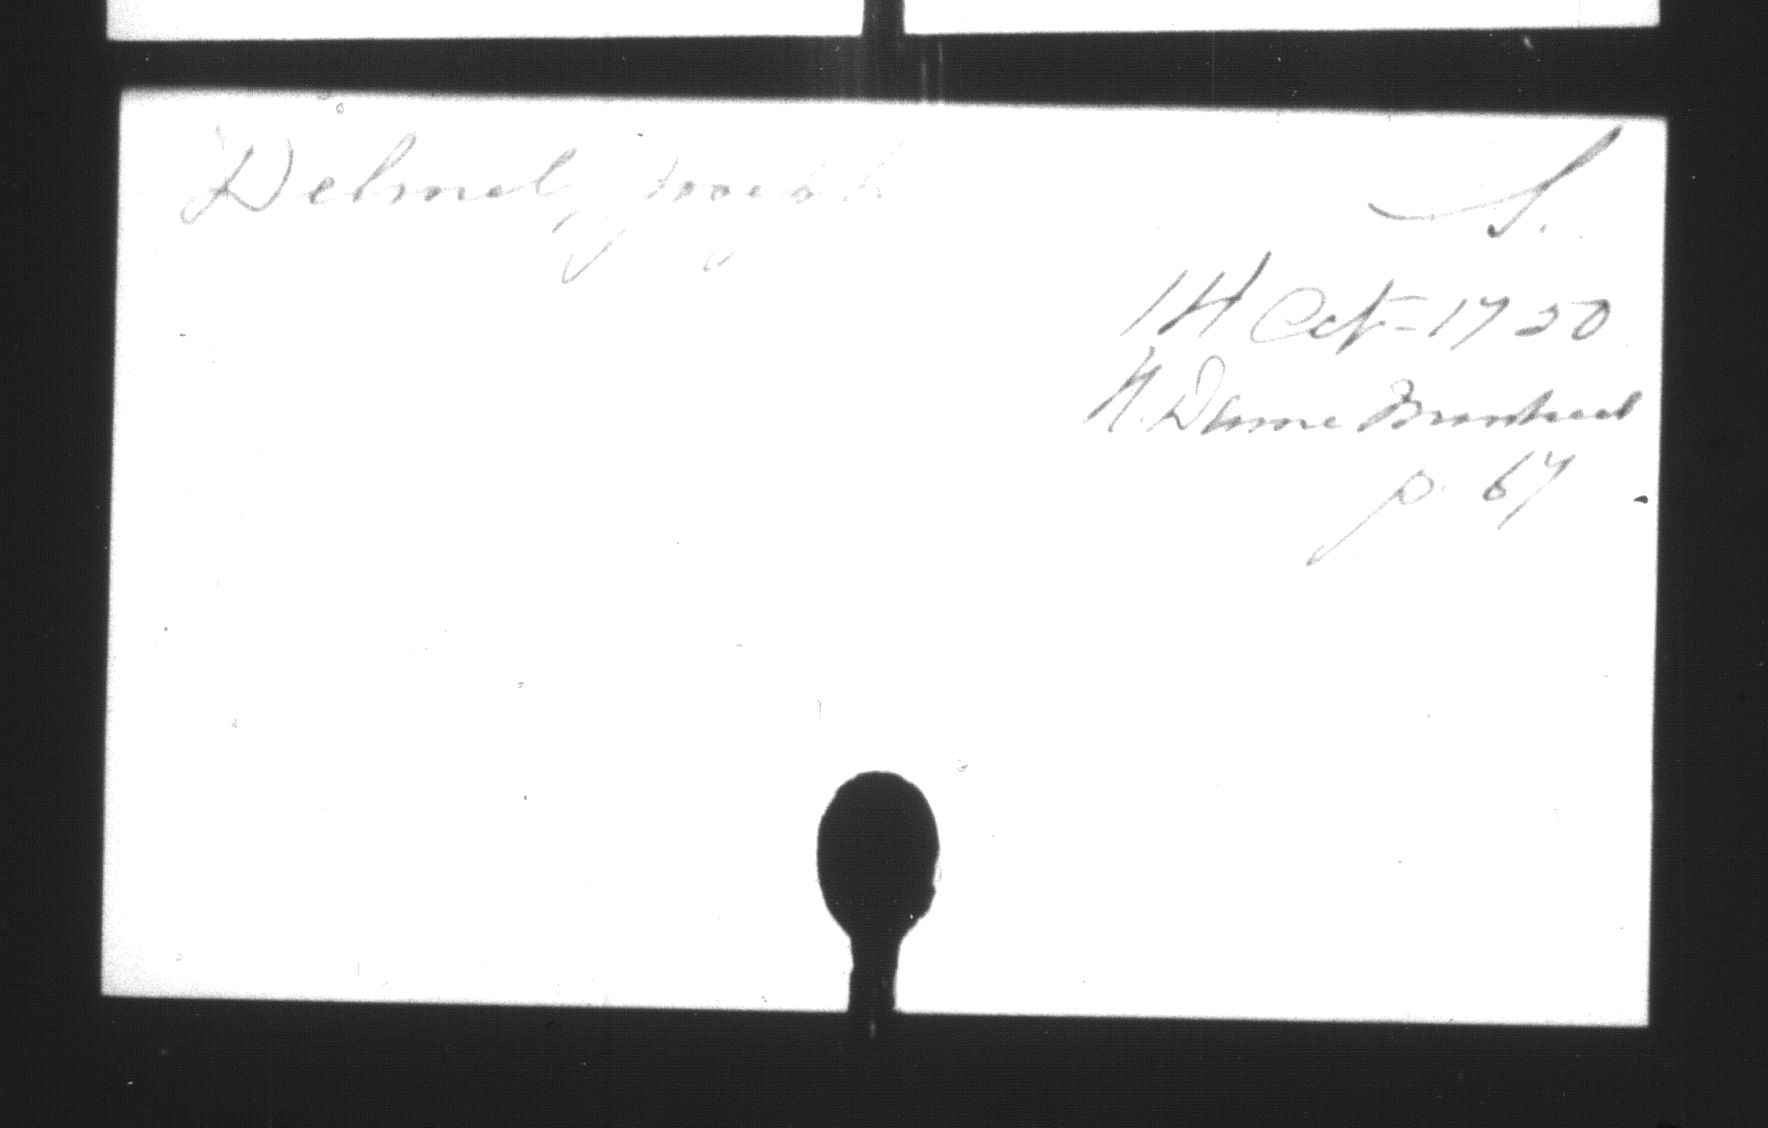 Delmel, Joseph
S.
14 Oct = 1750
N. Dame Montreal
p. 67